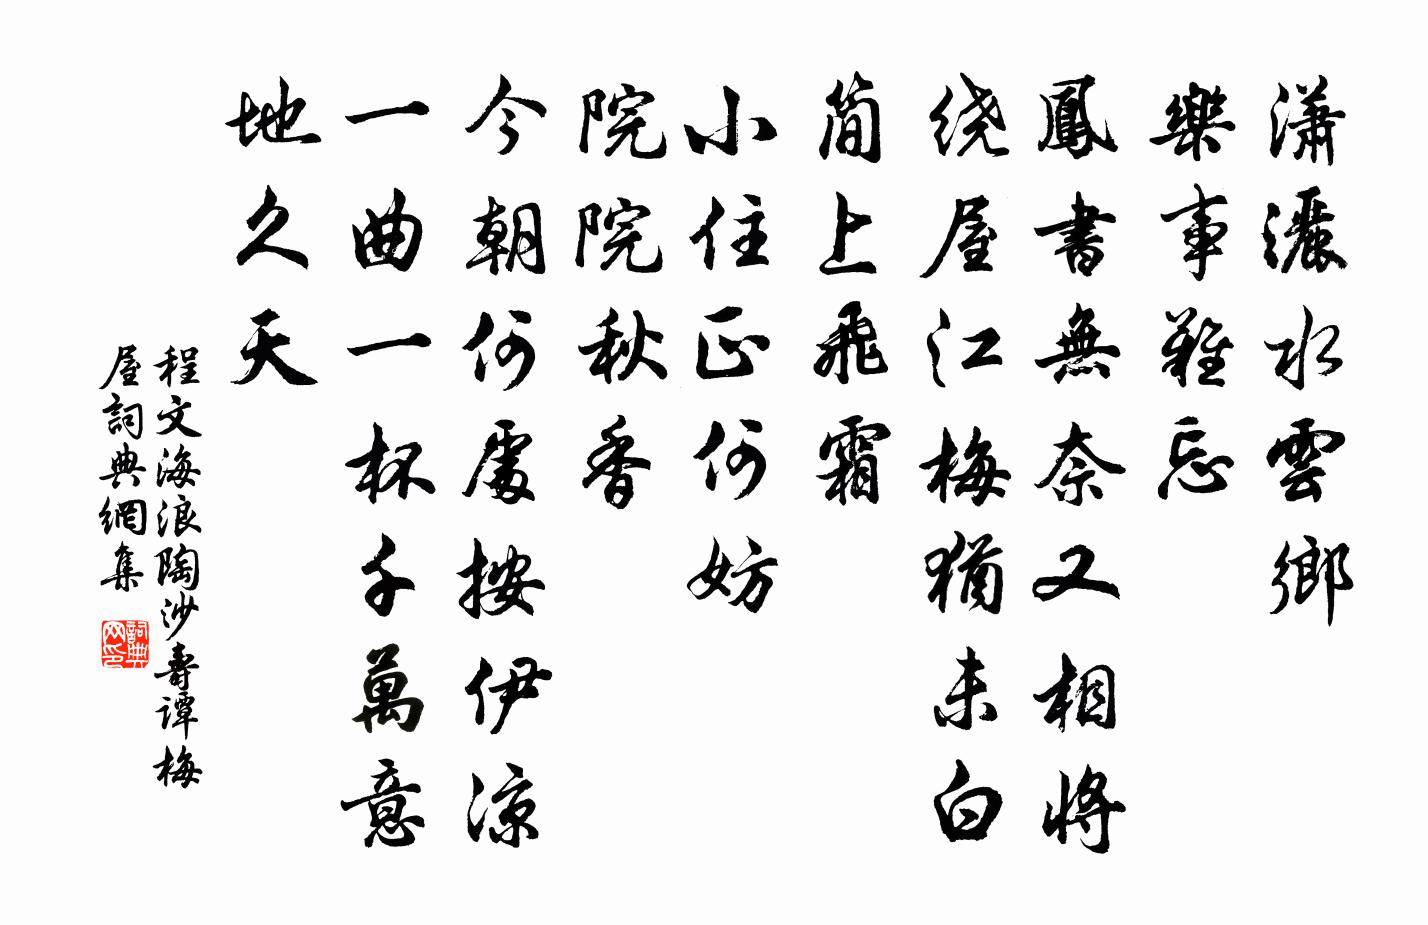 瀟灑水雲鄉
樂事難忘
鳳書無奈又相將
绕屋江梅猶未白
简上飛霜
小住正何妨
院院秋香
今朝何處按伊涼
一曲一杯千萬意
地久天
程文海浪陶沙壽谭梅
屋詞典網集
詞典
网印